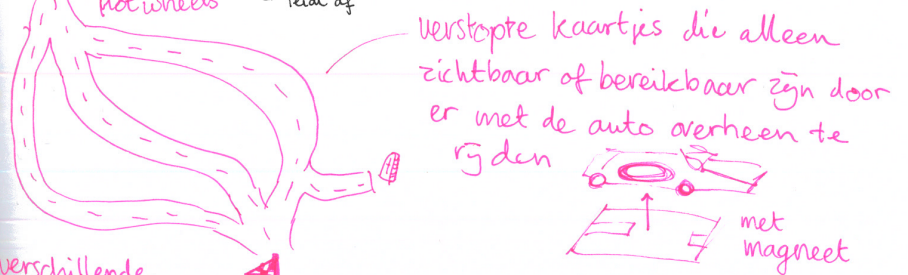 hotwheels
verstopte kaartjes die alleen
zichtbaar of bereikbaar zijn door
er met de auto overheen te
rijden
met
magneet
verschillende